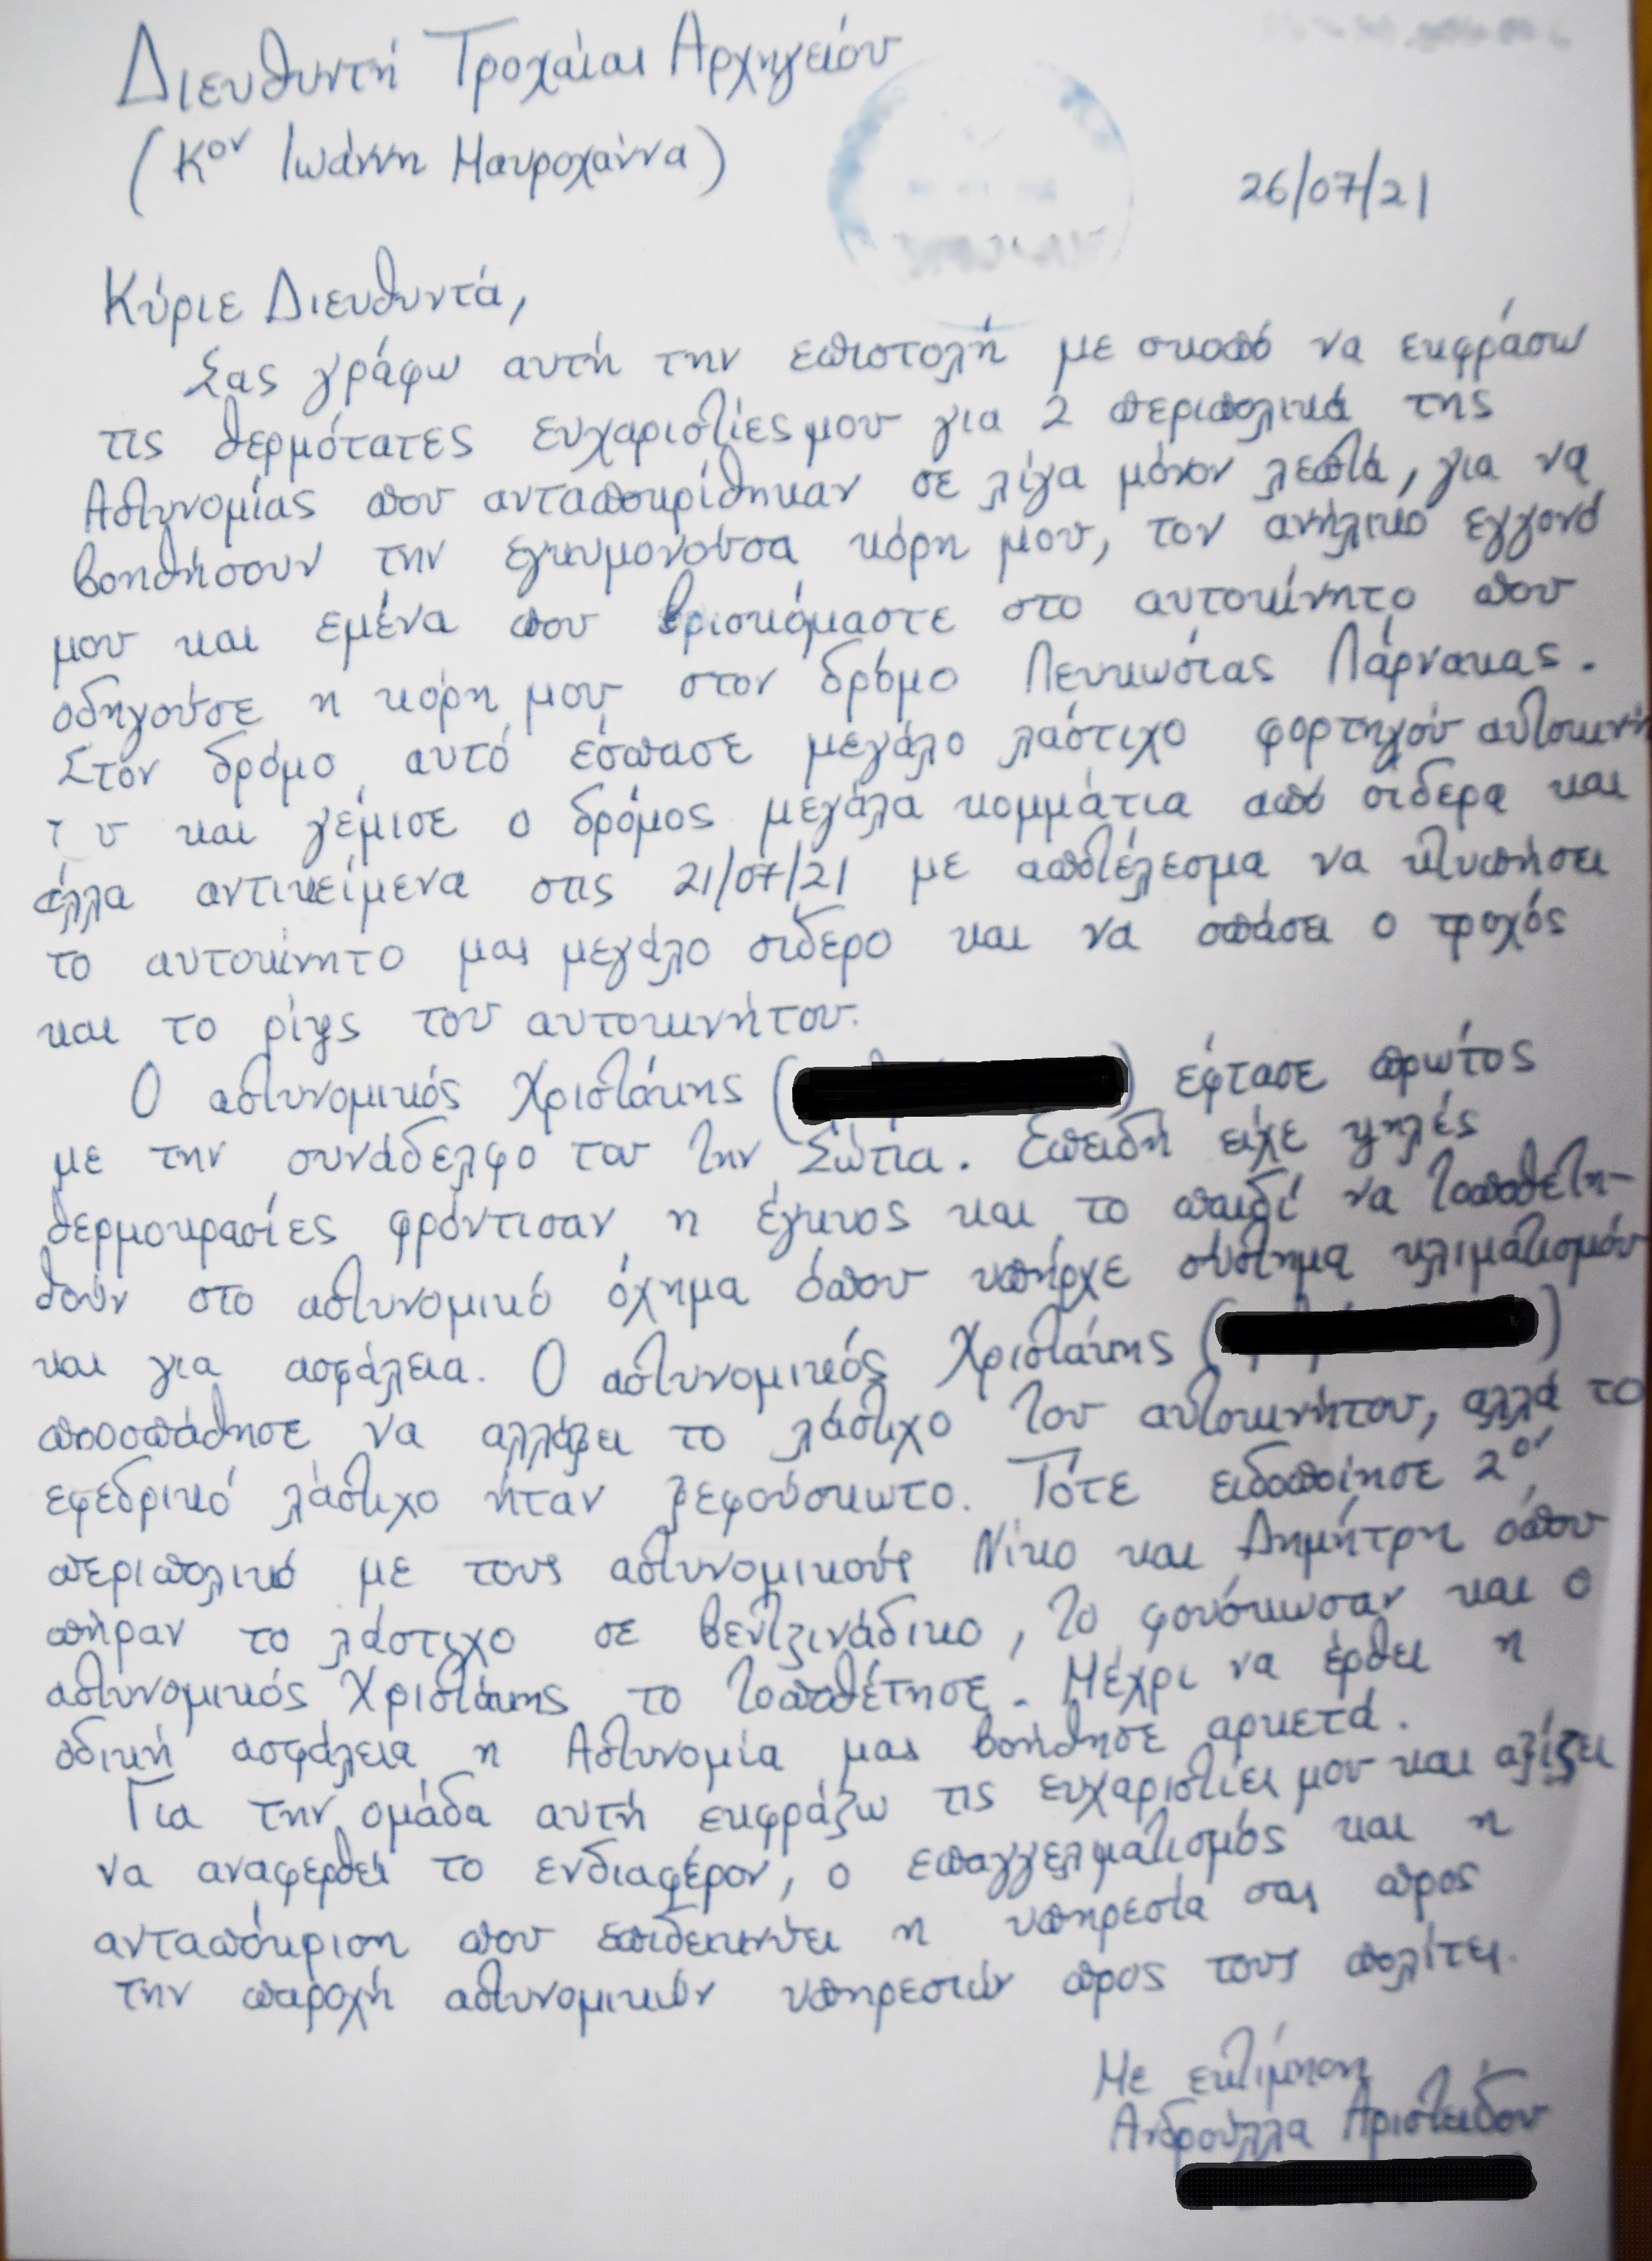 Διευθυντή Τροχαίας Αρχηγείου
(Κον Ιωάννη Μαυροχάννα)
26/07/21
Κύριε Διευθυντά,
Σας γράφω αυτή την επιστολή με σκοπό να εκφράσω
τις θερμότατες ευχαριστίες μου για 2 περιπολικά της
Αστυνομίας που ανταποκρίθηκαν σε λίγα μόνον λεπτά, για να
βοηθήσουν την εγκυμονούσα κόρη μου, τον ανήλικο εγγονό
μου και εμένα που βρισκόμαστε στο αυτοκίνητο που
οδηγούσε η κόρη μου στον δρόμο Λευκωσίας Λάρνακας.
Στον δρόμο αυτό έσπασε μεγάλο λάστιχο φορτηγού αυτοκινή
τ υ και γέμισε ο δρόμος μεγάλα κομμάτια από σίδερα και
άλλα αντικείμενα στις 21/07/21 με αποτέλεσμα να κτυπήσει
το αυτοκίνητο μας μεγάλο σίδερο και να σπάσει ο τροχός
και το ρίγς του αυτοκινήτου.
Ο αστυνομικός Χριστάκης ( ) έφτασε πρώτος
με την συνάδελφο του την Σώτια. Επειδή είχε ψηλές
θερμοκρασίες φρόντισαν η έγκυος και το παιδί να τοποθετη-
θούν στο αστυνομικό όχημα όπου υπήρχε σύστημα κλιματισμού
και για ασφάλεια. Ο αστυνομικός Χριστάκης ( )
προσπάθησε να αλλάξει το λάστιχο του αυτοκινήτου, αλλά το
εφεδρικό λάστιχο ήταν ξεφούσκωτο. Τότε ειδοποίησε 2ον
περιπολικό με τους αστυνομικούς Νίκο και Δημήτρη όπου
πήραν το λάστιχο σε βεντζινάδικο, το φούσκωσαν και ο
αστυνομικός Χριστάκης το τοποθέτησε. Μέχρι να έρθει η
οδική ασφάλεια η Αστυνομία μας βοήθησε αρκετά.
Για την ομάδα αυτή εκφράζω τις ευχαριστίες μου και αξίζει
να αναφερθεί το ενδιαφέρον, ο επαγγελματισμός και η
ανταπόκριση που επιδεικνύει η υπηρεσία σας προς
την παροχή αστυνομικών υπηρεσιών προς τους πολίτες.
Με εκτίμηση
Ανδρούλλα Αριστείδου